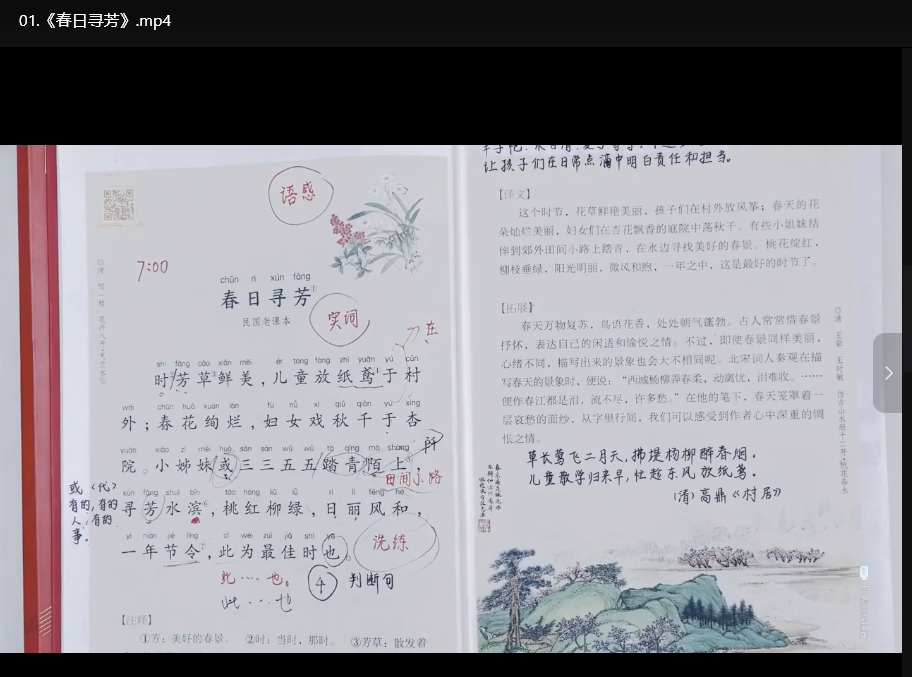 01.《春日寻芳》.mp4
语感
7:00
chūn rì xún fāng
春日寻芳①
民国老课本
实词
在
shí fāng cǎo xiān měi ér tóng fàng zhǐ yuān yú cūn
时芳草鲜美，儿童放纸鸢于村
wài chūn huā xuàn làn fù nǚ xì qiū qiān yú xìng
外；春花绚烂，妇女戏秋千于杏
yuàn xiǎo zǐ mèi huò sān sān wǔ wǔ tà qīng mò shàng
院。小姊妹或三三五五踏青陌上，
田间小路
或〈代〉
有的，有的
人，有的
事。
xún fāng shuǐ bīn táo hóng liǔ lǜ rì lì fēng hé
寻芳水滨，桃红柳绿，日丽风和，
yì nián jié lìng cǐ wéi zuì jiā shí yě
一年节令，此为最佳时也。
洗练
此…也。
此…也
④ 判断句
【注释】
①芳：美好的春景。 ②时：当时，那时。 ③芳草：散发着
让孩子们在日常点滴中明白责任和担当。
【译文】
这个时节，花草鲜艳美丽，孩子们在村外放风筝；春天的花
朵灿烂美丽，妇女们在杏花飘香的庭院中荡秋千。有些小姐妹结
伴到郊外田间小路上踏青，在水边寻找美好的春景。桃花绽红，
柳枝垂绿，阳光明丽，微风和煦，一年之中，这是最好的时节了。
【拓展】
春天万物复苏，鸟语花香，处处朝气蓬勃。古人常常借春景
抒怀，表达自己的闲适和愉悦之情。不过，即使春景同样美丽，
心绪不同，描写出来的景象也会大不相同呢。北宋词人秦观在描
写春天的景象时，便说：“西城杨柳弄春柔，动离忧，泪难收。……
便作春江都是泪，流不尽，许多愁。”在他的笔下，春天笼罩着一
层哀愁的面纱，从字里行间，我们可以感受到作者心中深重的惆
怅之情。
草长莺飞二月天，拂堤杨柳醉春烟。
儿童散学归来早，忙趁东风放纸鸢。
（清）高鼎《村居》